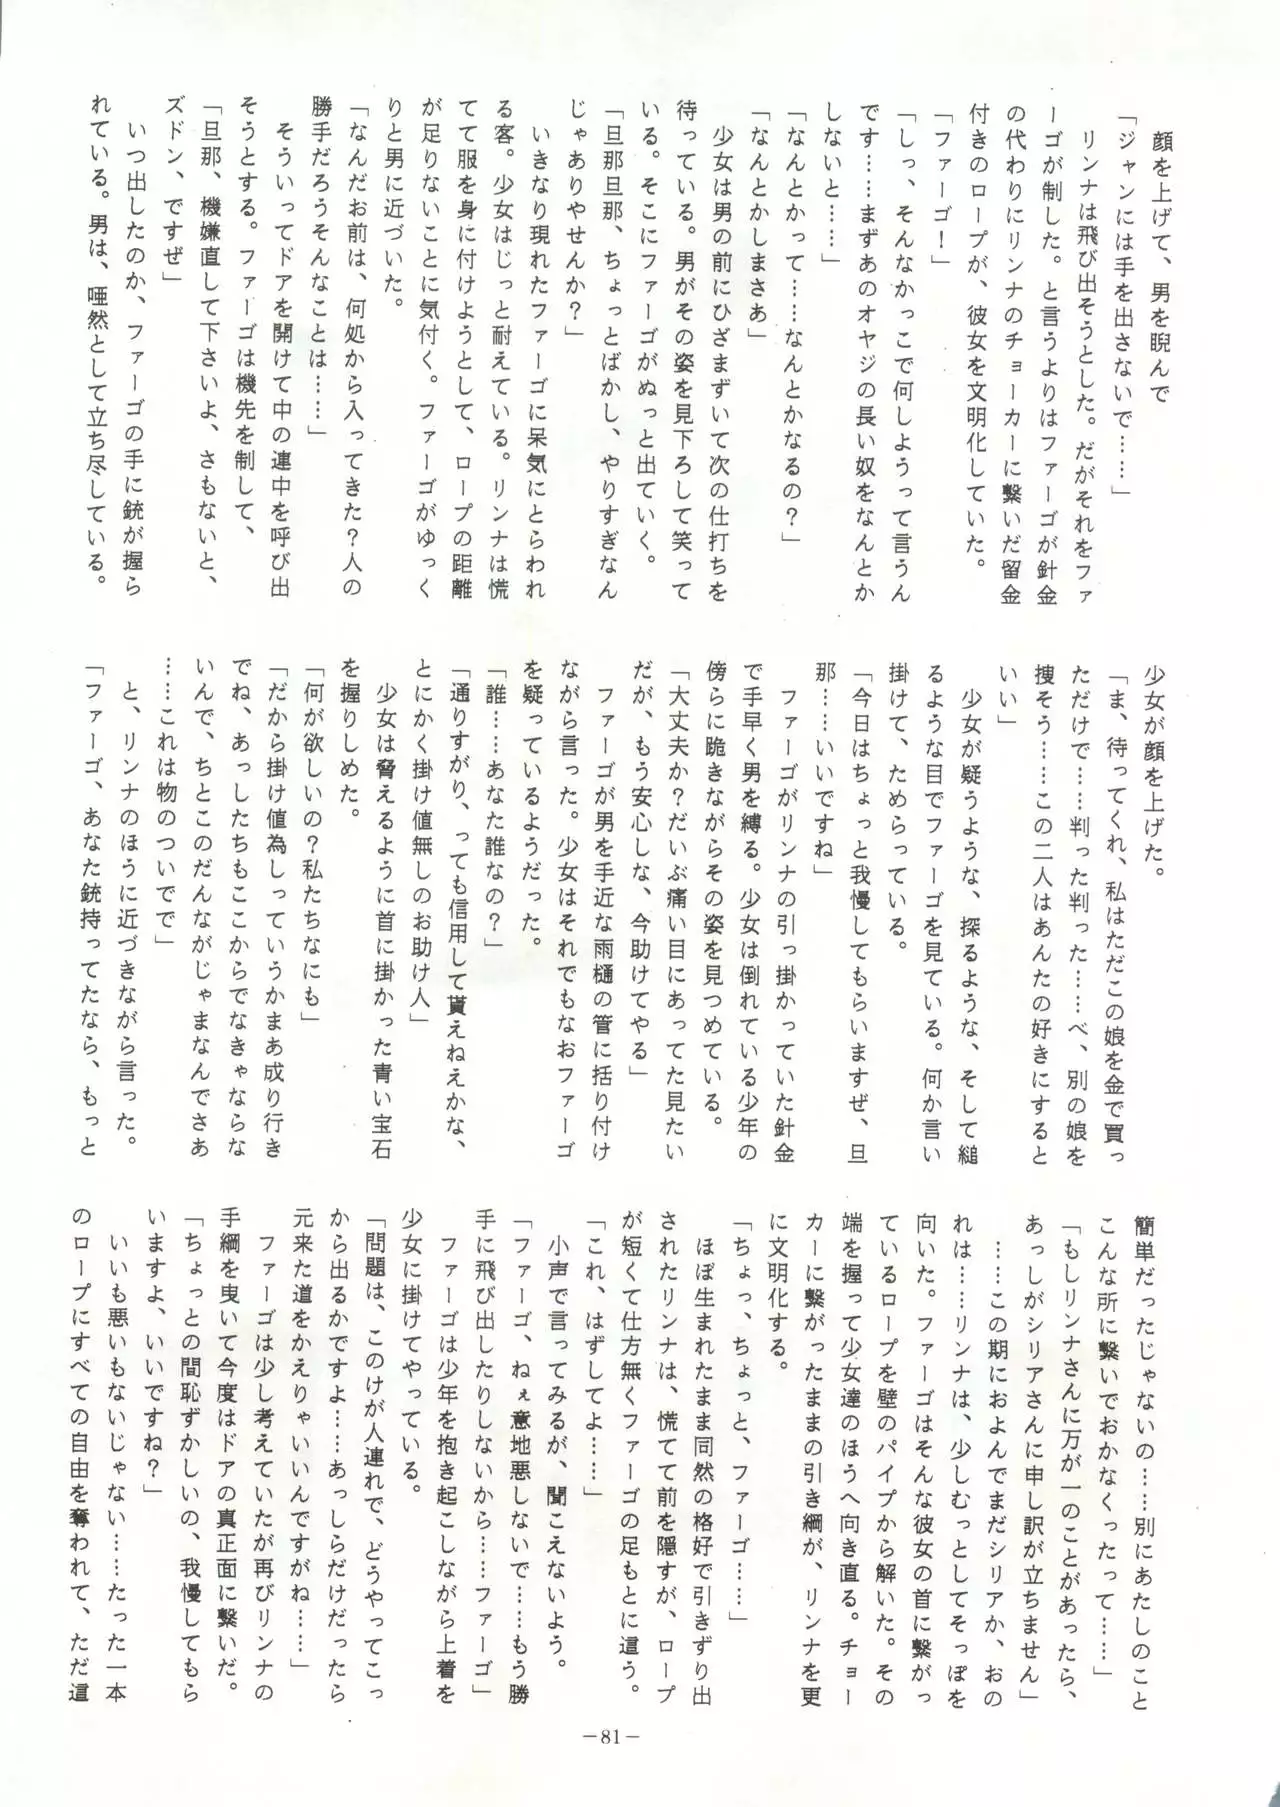 顔を上げて、男を睨んで
「ジャンには手を出さないで……」
リンナは飛び出そうとした。だがそれをファ
ーゴが制した。と言うよりはファーゴが針金
の代わりにリンナのチョーカーに繋いだ留金
付きのロープが、彼女を文明化していた。
「ファーゴ！」
「しっ、そんなかっこで何しようって言うん
です……まずあのオヤジの長い奴をなんとか
しないと……」
「なんとかって……なんとかなるの？」
「なんとかしまさあ」
少女は男の前にひざまずいて次の仕打ちを
待っている。男がその姿を見下ろして笑って
いる。そこにファーゴがぬっと出ていく。
「旦那旦那、ちょっとばかし、やりすぎなん
じゃありやせんか？」
いきなり現れたファーゴに呆気にとらわれ
る客。少女はじっと耐えている。リンナは慌
てて服を身に付けようとして、ロープの距離
が足りないことに気付く。ファーゴがゆっく
りと男に近づいた。
「なんだお前は、何処から入ってきた？人の
勝手だろうそんなことは……」
そういってドアを開けて中の連中を呼び出
そうとする。ファーゴは機先を制して、
「旦那、機嫌直して下さいよ、さもないと、
ズドン、ですぜ」
いつ出したのか、ファーゴの手に銃が握ら
れている。男は、唖然として立ち尽している。
少女が顔を上げた。
「ま、待ってくれ、私はただこの娘を金で買っ
ただけで……判った判った……べ、別の娘を
捜そう……この二人はあんたの好きにすると
いい」
少女が疑うような、探るような、そして縋
るような目でファーゴを見ている。何か言い
掛けて、ためらっている。
「今日はちょっと我慢してもらいますぜ、旦
那……いいですね」
ファーゴがリンナの引っ掛かっていた針金
で手早く男を縛る。少女は倒れている少年の
傍らに跪きながらその姿を見つめている。
「大丈夫か？だいぶ痛い目にあってた見たい
だが、もう安心しな、今助けてやる」
ファーゴが男を手近な雨樋の管に括り付け
ながら言った。少女はそれでもなおファーゴ
を疑っているようだった。
「誰……あなた誰なの？」
「通りすがり、っても信用して貰えねえかな、
とにかく掛け値無しのお助け人」
少女は脅えるように首に掛かった青い宝石
を握りしめた。
「何が欲しいの？私たちなにも」
「だから掛け値為しっていうかまあ成り行き
でね、あっしたちもここからでなきゃならな
いんで、ちとこのだんながじゃまなんでさあ
……これは物のついでで」
と、リンナのほうに近づきながら言った。
「ファーゴ、あなた銃持ってたなら、もっと
簡単だったじゃないの……別にあたしのこと
こんな所に繋いでおかなくったって……」
「もしリンナさんに万が一のことがあったら、
あっしがシリアさんに申し訳が立ちません」
……この期におよんでまだシリアか、おの
れは……リンナは、少しむっとしてそっぽを
向いた。ファーゴはそんな彼女の首に繋がっ
ているロープを壁のパイプから解いた。その
端を握って少女達のほうへ向き直る。チョー
カーに繋がったままの引き綱が、リンナを更
に文明化する。
「ちょっ、ちょっと、ファーゴ……」
ほぼ生まれたまま同然の格好で引きずり出
されたリンナは、慌てて前を隠すが、ロープ
が短くて仕方無くファーゴの足もとに這う。
「これ、はずしてよ……」
小声で言ってみるが、聞こえないよう。
「ファーゴ、ねぇ意地悪しないで……もう勝
手に飛び出したりしないから……ファーゴ」
ファーゴは少年を抱き起こしながら上着を
少女に掛けてやっている。
「問題は、このけが人連れで、どうやってこっ
から出るかですよ……あっしらだけだったら
元来た道をかえりゃいいんですがね……」
ファーゴは少し考えていたが再びリンナの
手綱を曳いて今度はドアの真正面に繋いだ。
「ちょっとの間恥ずかしいの、我慢してもら
いますよ、いいですね？」
いいも悪いもないじゃない……たった一本
のロープにすべての自由を奪われて、ただ這
－81－